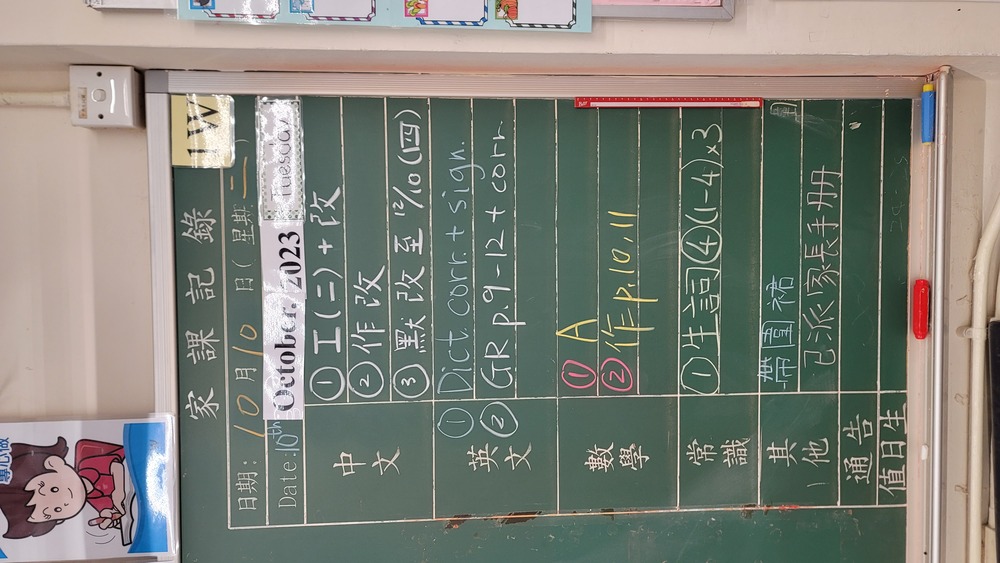 1W
家課記錄
日期: 10月10日(星期二)
Date: 10th October, 2023 Tuesday
中文
①工(二)+改
②作改
③默改至12/10(四)
英文
①Dict. corr. + sign.
②GR p.9-12 + corr.
數學
①A
②作:p.10,11
常識
①生詞④(1-4)x3
其他
帶圖
已派家長手册
通告
值日生